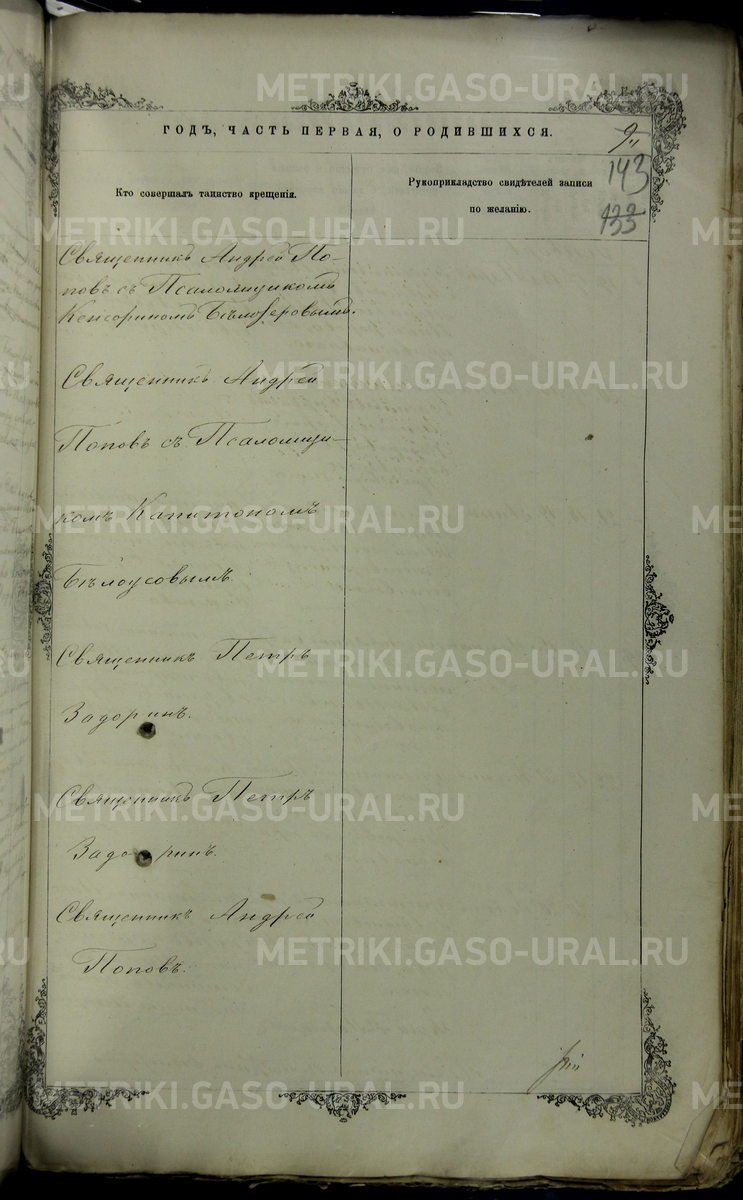 ГОДЪ, ЧАСТЬ ПЕРВАЯ, О РОДИВШИХСЯ.
9
143
133
Кто совершалъ таинство крещенія.
Рукоприкладство свидѣтелей записи
по желанію.
Священникъ Андрей По-
повъ съ Псаломщикомъ
Кенсориномъ Бѣлозеровымъ.
Священникъ Андрей
Поповъ съ Псаломщи-
комъ Капитономъ
Бѣлоусовымъ.
Священникъ Петръ
Задоринъ.
Священникъ Петръ
Задоринъ.
Священникъ Андрей
Поповъ.
METRIKI.GASO-URAL.RU
METRIKI.GASO-URAL.RU
METRIKI.GASO-URAL.RU
METRIKI.GASO-URAL.RU
METRIKI.GASO-URAL.RU
METRIKI.GASO-URAL.RU
METRIKI.GASO-URAL.RU
METRIKI.GASO-URAL.RU